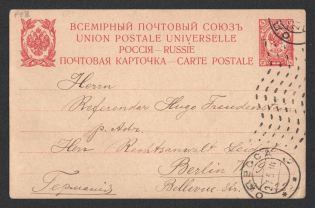 ВСЕМІРНЫЙ ПОЧТОВЫЙ СОЮЗЪ
UNION POSTALE UNIVERSELLE
РОССІЯ—RUSSIE
ПОЧТОВАЯ КАРТОЧКА—CARTE POSTALE
Herrn
Referendar Hugo
p. Adr.
Herrn Rechtsanwalt
Berlin W
Германія
Bellevue Str.
ОДЕССА